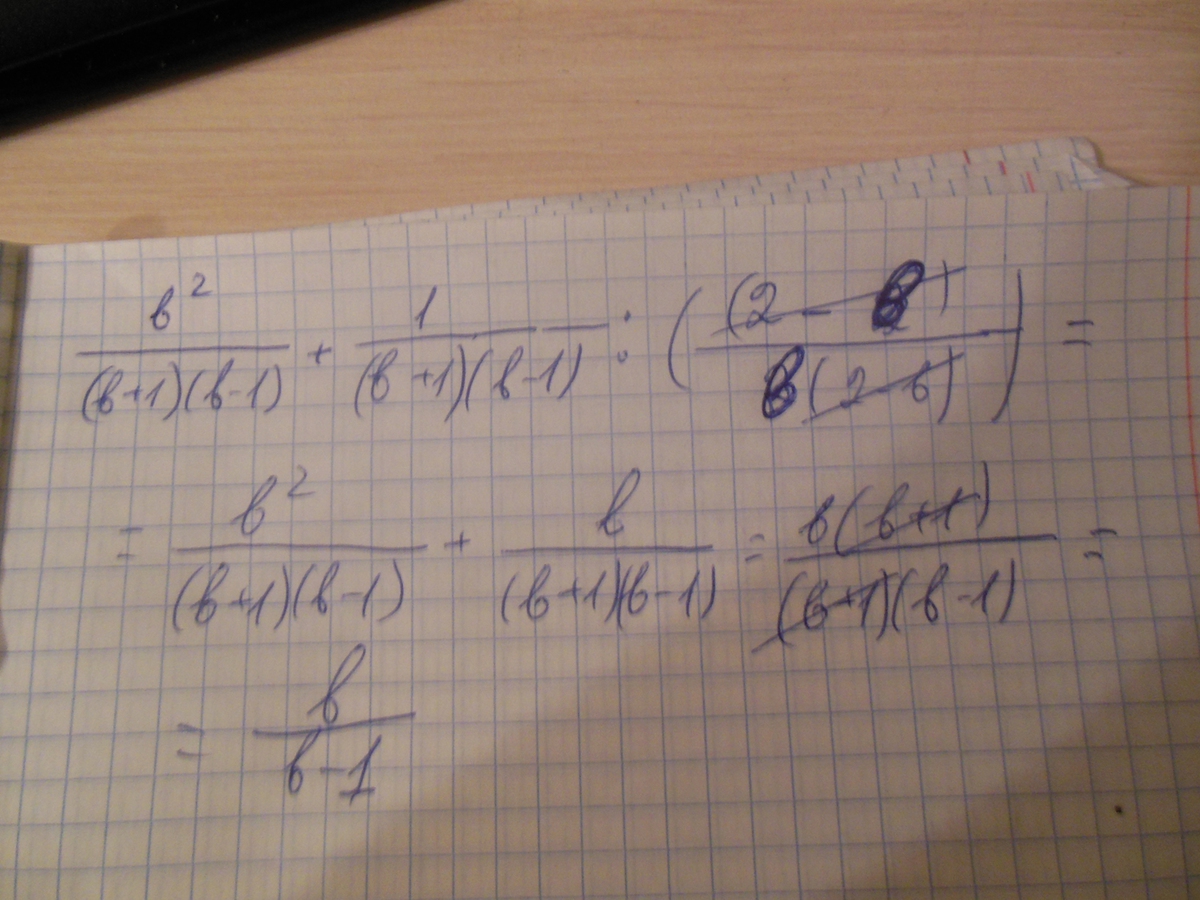 b²/((b+1)(b-1)) + 1/((b+1)(b-1)) : ((2-b)/(b(2-b))) =
= b²/((b+1)(b-1)) + b/((b+1)(b-1)) = b(b+1)/((b+1)(b-1)) =
= b/(b-1)